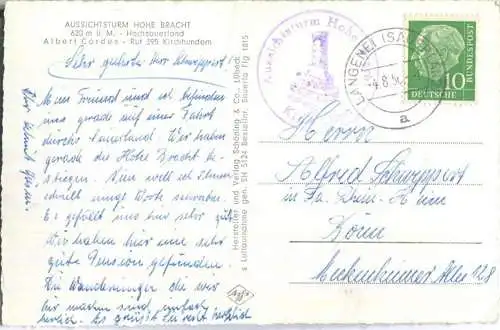 AUSSICHTSTURM HOHE BRACHT
620 m ü. M. - Hochsauerland
Albert Cordes - Ruf 295 Kirchhundem
Sehr geehrter Herr Schuppert!
Mein Freund und ich befinden
uns gerade auf einer Fahrt
durchs Sauerland. Wir haben
gerade die Hohe Bracht be-
stiegen. Nun will ich Ihnen
schnell einige Worte schreiben.
Es gefällt uns hier sehr gut.
Wir haben hier eine sehr
gute Pension gefunden.
Die Wanderungen die wir
hier machen sind einfach
herrlich. Es grüßt Sie recht herzlich
Ihr Helmut
Hersteller und Verlag Schöning & Co., Lübeck
s Luftaufnahme gen. SH 5124 Besteller, Skiverto Flg 1815
Aussichtsturm Hohe
LANGENEI (SA
4.8.5
a
DEUTSCHE
BUNDESPOST
10
Herrn
Alfred Schuppert
in Fa.
Köln
Meckenheimer Allee 28